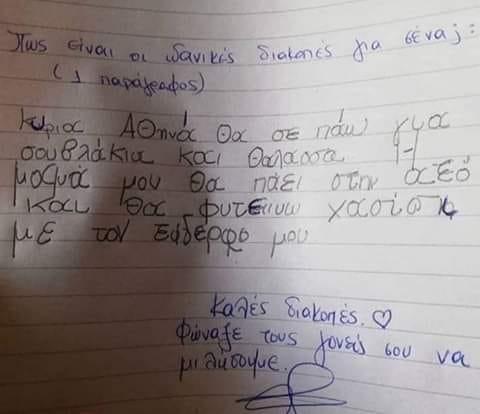 Πως είναι οι ιδανικές διακοπές για σένα; :
( 1 παράγραφος)
Κυρια Αθηνά θα σε πάω γμα
σουβλάκια και θαλασσα Η
μαμά μου θα πάει στην αεό
και θα φυτευω χασίσι
με τον ξαδερφο μου
Καλές διακοπές. ♡
Φώναξε τους γονείς σου να
μιλήσουμε.